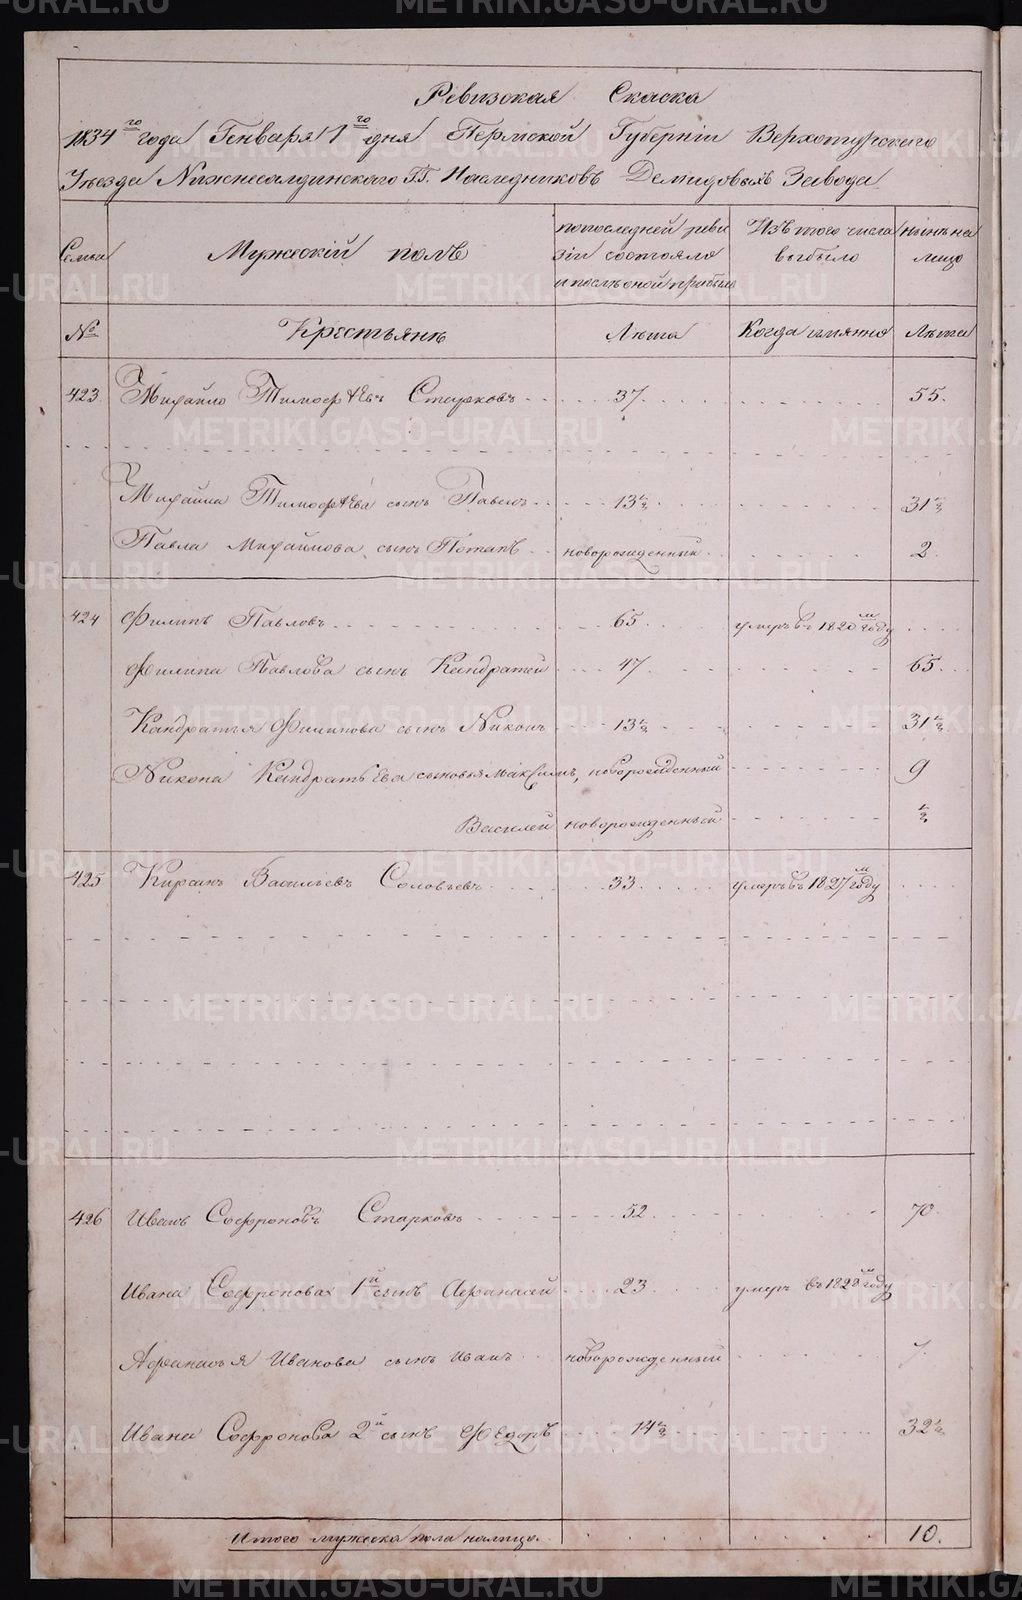 METRIKI.GASO-URAL.RU
Ревизская Скаска
1834го года Генваря 1го дня Пермской Губернiи Верхотурского
Уѣзда Нижнесалдинского ГГ. Наслѣдниковъ Демидовыхъ Завода
Семьи
Мужескiй полъ
попоследней реви
зiи состояло
ипослѣ оной прибыло
Изъ того числа
выбыло
нынѣ на
лицо
№ Крестьянѣ Лѣта Когда имянно Лѣта
423 Михайло Тимофѣевъ Старковъ 37 55.
Михайла Тимофѣева сынъ Павелъ 13 1/2 31 1/2
Павла Михайлова сынъ Потапъ новорожденный 2
424 Филипъ Павловъ 65 умеръ въ 1820м году
Филипа Павлова сынъ Кандратей 47 65
Кандратья Филипова сынъ Никонъ 13 1/2 31 1/2
Никона Кандратьева сыновья Максимъ, новорожденный 9
Василей новорожденный 1/2
425 Кирсанъ Васильевъ Соловьевъ 33 умеръ въ 1827м году
426 Иванъ Софроновъ Старковъ 52 70.
Ивана Софронова 1й сынъ Афанасей 23 умеръ въ 1828м году
Афанасья Иванова сынъ Иванъ новорожденный 7.
Ивана Софронова 2й сынъ Федоръ 14 1/2 32 1/2
Итого мужеска пола налицо 10.